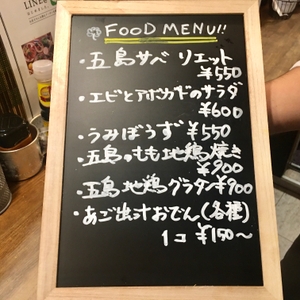 LINE
FOOD MENU!!
・五島サバ リエット
¥550
・エビとアボカドのサラダ
¥600
・うみぼうず ¥550
・五島のもも地鶏焼き
¥900
・五島地鶏グラタン ¥900
・あご出汁おでん(各種)
1コ ¥150～